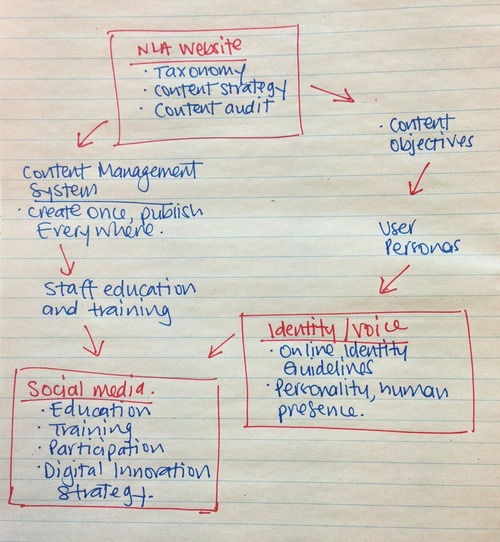 NLA Website
· Taxonomy
· content strategy
· Content audit
· Content
objectives
Content Management
System
· create once, publish
Everywhere.
User
Personas
Staff education
and training
Identity/voice
· Online Identity
Guidelines
· Personality, human
presence.
Social media.
· Education
· Training
· Participation
· Digital Innovation
Strategy.